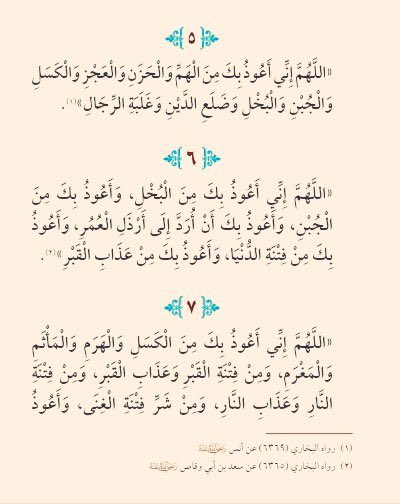 ٥
«اللَّهُمَّ إِنِّي أَعُوذُ بِكَ مِنَ الْهَمِّ وَالْحَزَنِ وَالْعَجْزِ وَالْكَسَلِ
وَالْجُبْنِ وَالْبُخْلِ وَضَلَعِ الدَّيْنِ وَغَلَبَةِ الرِّجَالِ»(١).
٦
«اللَّهُمَّ إِنِّي أَعُوذُ بِكَ مِنَ الْبُخْلِ، وَأَعُوذُ بِكَ مِنَ
الْجُبْنِ، وَأَعُوذُ بِكَ أَنْ أُرَدَّ إِلَى أَرْذَلِ الْعُمُرِ، وَأَعُوذُ
بِكَ مِنْ فِتْنَةِ الدُّنْيَا، وَأَعُوذُ بِكَ مِنْ عَذَابِ الْقَبْرِ»(٢).
٧
«اللَّهُمَّ إِنِّي أَعُوذُ بِكَ مِنَ الْكَسَلِ وَالْهَرَمِ وَالْمَأْثَمِ
وَالْمَغْرَمِ، وَمِنْ فِتْنَةِ الْقَبْرِ وَعَذَابِ الْقَبْرِ، وَمِنْ فِتْنَةِ
النَّارِ وَعَذَابِ النَّارِ، وَمِنْ شَرِّ فِتْنَةِ الْغِنَى، وَأَعُوذُ
(١) رواه البخاري (٦٣٦٩) عن أنس رَضِيَ اللَّهُ عَنْهُ
(٢) رواه البخاري (٦٣٦٥) عن سعد بن أبي وقاص رَضِيَ اللَّهُ عَنْهُ